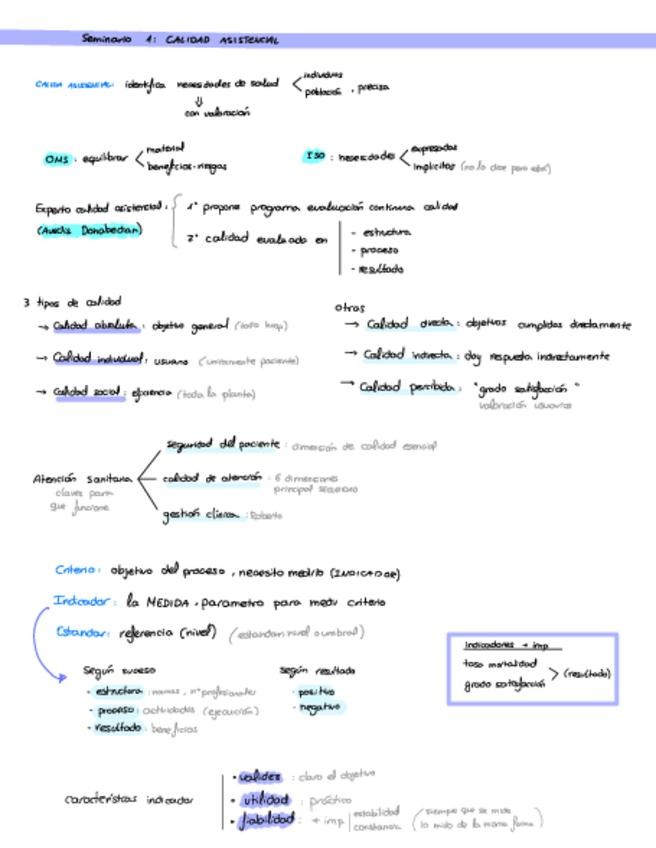 Seminario 1: CALIDAD ASISTENCIAL
CALIDA ASISTENCIAL: identifica necesidades de salud
individuos
población, precisa
con valoración
OMS: equilibrar
material
beneficios-riesgos
ISO: necesidades
expresadas
implícitas (no lo dice pero está)
Experto calidad asistencial:
(Avedis Donabedian)
1º propone programa evaluación continua calidad
2º calidad evaluada en
- estructura
- proceso
- resultado
3 tipos de calidad
→ Calidad absoluta: objetivo general (todo hosp)
→ Calidad individual: usuario (únicamente paciente)
→ Calidad social: eficiencia (toda la planta)
otros
→ Calidad directa: objetivos cumplidos directamente
→ Calidad indirecta: doy respuesta indirectamente
→ Calidad percibida: "grado satisfacción"
valoración usuarios
Atención sanitaria
claves para
que funcione
seguridad del paciente: dimensión de calidad esencial
calidad de atención: 6 dimensiones
principal
gestión clínica: Roberto
Criterio: objetivo del proceso, necesito medirlo (INDICADOR)
Indicador: la MEDIDA, parámetro para medir criterio
Estandar: referencia (nivel) (estandar nivel o umbral)
Según suceso
- estructura: normas, nº profesionales
- proceso: actividades (ejecución)
- resultado: beneficios
según resultado
· positivo
· negativo
Indicadores + imp
tasa mortalidad
grado satisfacción
(resultado)
Características indicador
· validez: claro el objetivo
· utilidad: práctico
· fiabilidad: + imp
estabilidad
constancia
(siempre que se mida
lo mido de la misma forma)